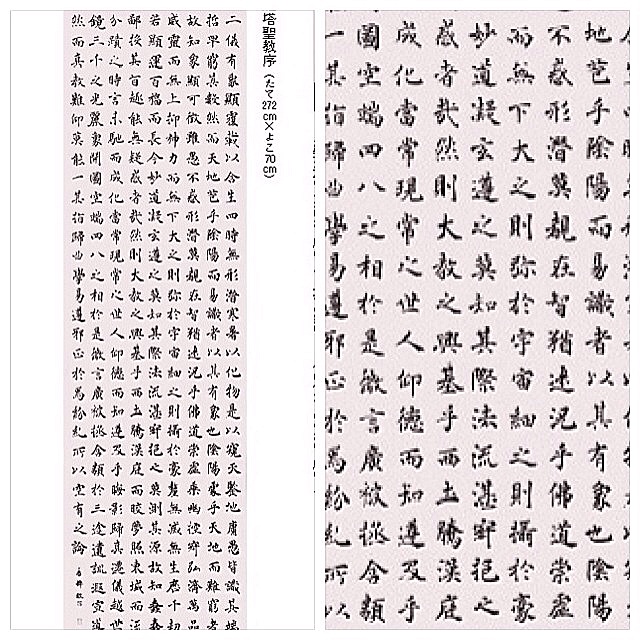 塔聖教序(たて272cm×よこ70cm)
二儀有象顯覆載以含生四時無形潜寒暑以化物是以窺天鑒地庸愚皆識其端
哲罕窮其數然而天地苞乎陰陽而易識者以其有象也陰陽處乎天地而難窮者
故知象顯可徵雖愚不惑形潜莫覩在智猶迷況乎佛道崇虛乘幽控寂弘濟萬品
威靈而無上抑神力而無下大之則弥於宇宙細之則攝於豪釐無滅無生歷千劫
若顯運百福而長今妙道凝玄遵之莫知其際法流湛寂挹之莫測其源故知蠢蠢
鄙俊其旨趣能無疑惑者哉然則大教之興基乎西土騰漢庭而皎夢照東域而流
分蹟之時言未馳而成化當常現常之世人仰德而知遵及乎晦影歸真遷儀越世
鏡三千之光麗象開圖空端四八之相於是微言廣被拯含類於三途遺訓遐宣導
然而真教難仰莫能一其指歸曲學易遵邪正於焉紛糺所以空有之論
地苞乎陰陽而易識者以其有象也陰陽
不惑形潜莫覩在智猶迷況乎佛道崇虛
而無下大之則弥於宇宙細之則攝於豪
妙道凝玄遵之莫知其際法流湛寂挹之
惑者哉然則大教之興基乎西土騰漢庭
成化當常現常之世人仰德而知遵及乎
圖空端四八之相於是微言廣被拯含類
一其指歸曲學易遵邪正於焉紛糺所以